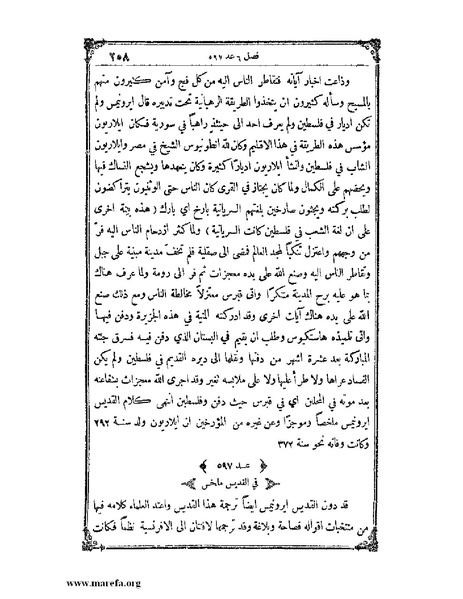 فصل ٦ عد ٥٩٧
٢٠٨
وذاعت اخبار آياته فتقاطر الناس اليه من كل فج وآمن كثيرون منهم
بالمسيح وسأله كثيرون ان يتخذوا الطريقة الرهبانية تحت تدبيره قال ايرونيمس ولم
تكن اديار في فلسطين ولم يعرف احد الى حينئذ راهبًا في سورية فكان ايلاريون
مؤسس هذه الطريقة في هذا الاقليم وكان لله انطونيوس الشيخ في مصر وايلاريون
الشاب في فلسطين وانشأ ايلاريون اديارًا كثيرة وكان يتعهدها ويشجع النساك فيها
ويحضهم على الكمال ولما كان يجتاز في القرى كان الناس حتى الوثنيون يتراكضون
لطلب بركته ويجثون صارخين بلغتهم السريانية بارخ اي بارك ( هذه بينة اخرى
على ان لغة الشعب في فلسطين كانت السريانية ) ولما كثر ازدحام الناس اليه فرّ
من وجههم واعتزل تنكبًا لمجد العالم فمضى الى صقلية فلم تخفَ مدينة مبنية على جبل
وتقاطر الناس اليه وصنع الله على يده معجزات ثم فر الى رومة ولما عرف هناك
بما هو عليه برح المدينة متنكرًا واتى قبرس معتزلاً مخالطة الناس ومع ذلك صنع
الله على يده هناك آيات اخرى وقد ادركته المنية في هذه الجزيرة ودفن فيها
واتى تلميذه هاستكيوس وطلب ان يقيم في البستان الذي دفن فيه فسرق جثته
المباركة بعد عشرة اشهر من دفنها ونقلها الى ديره القديم في فلسطين ولم يكن
الفساد عراها ولا طرأ عليها ولا على ملابسه تغير وقد اجرى الله معجزات بشفاعته
بعد موته في المحلين اي في قبرس حيث دفن وفلسطين انتهى كلام القديس
ايرونيمس ملخصًا وموجزًا وعن غيره من المؤرخين ان ايلاريون ولد سنة ٢٩٢
وكانت وفاته نحو سنة ٣٧٢
﴿ عد ٥٩٧ ﴾
في القديس ملخس
قد دون القديس ايرونيمس ايضًا ترجمة هذا القديس واعتد العلماء كلامه فيها
من منتخبات اقواله فصاحة وبلاغة وقد ترجمها لافنتان الى الافرنسية نظمًا فكانت
www.marefa.org